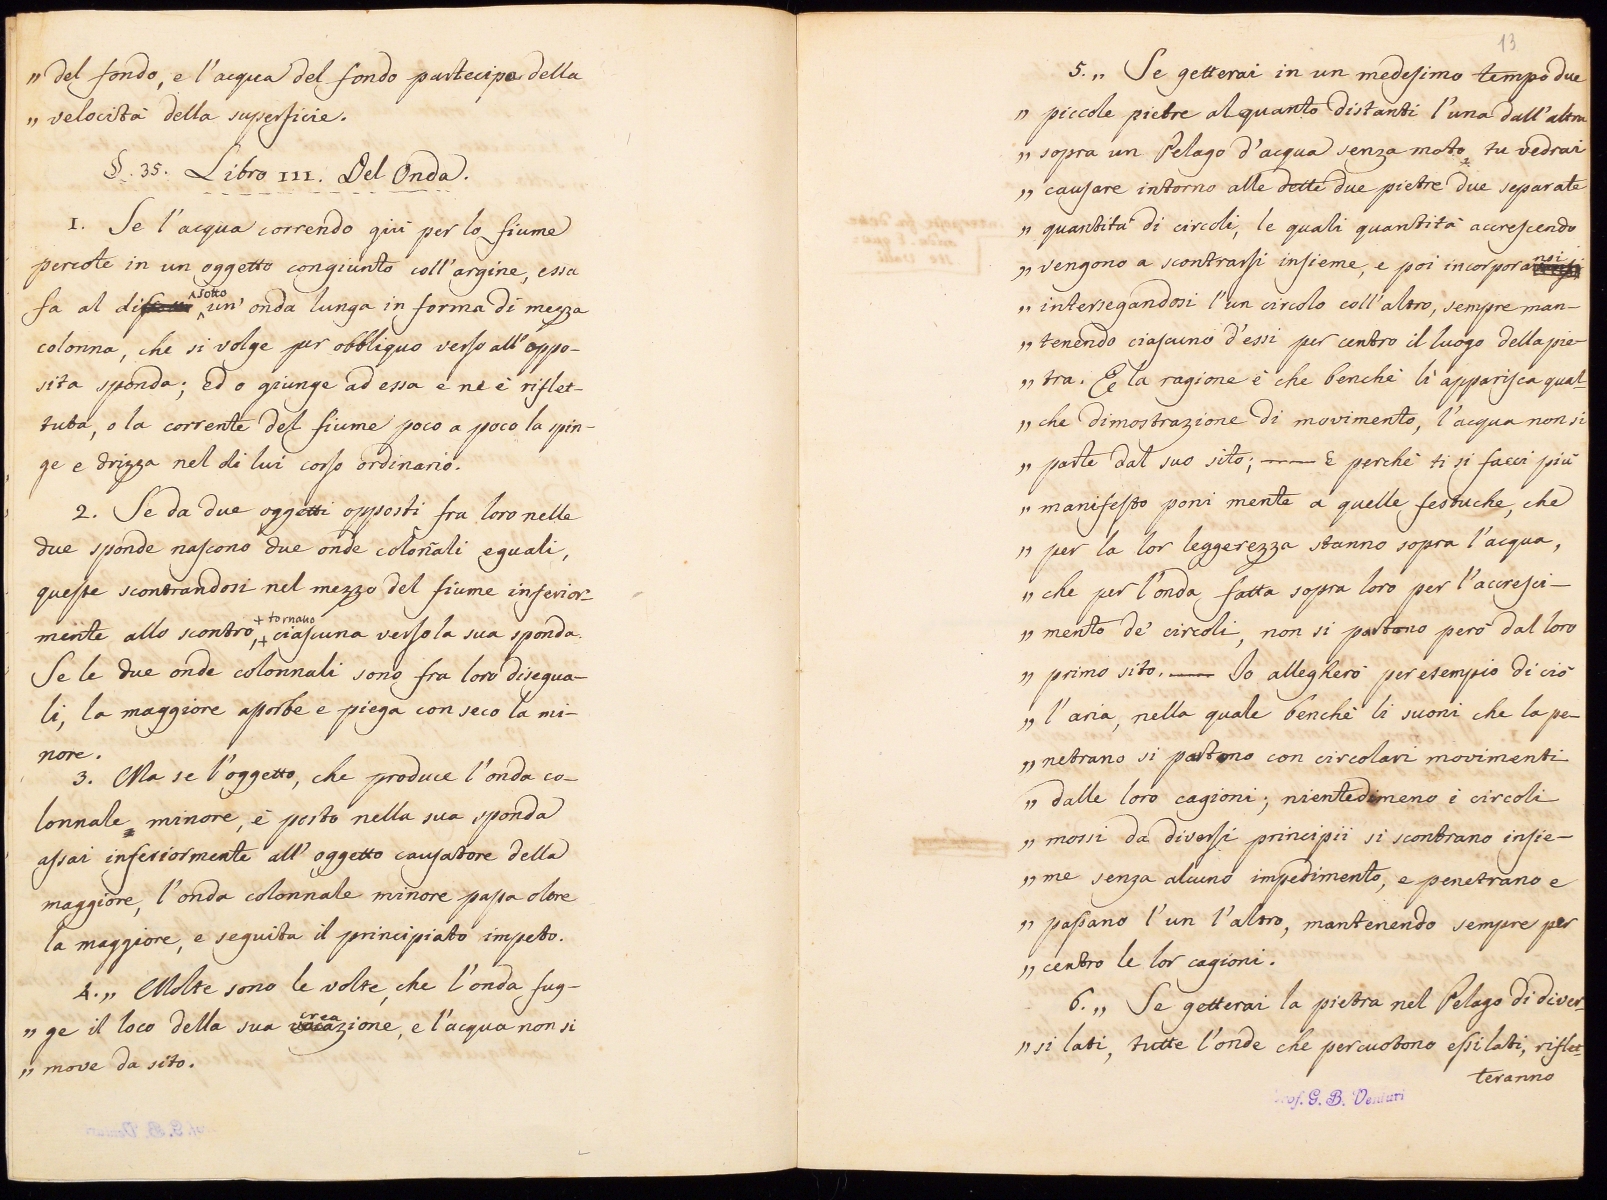 „ del fondo, e l'acqua del fondo partecipa della
„ velocità della superficie.
§. 35. Libro III. Del Onda.
1. Se l'acqua correndo giù per lo fiume
percote in un oggetto congiunto coll'argine, essa
fa al di sotto un' onda lunga in forma di mezza
colonna, che si volge per obbliquo verso all'oppo-
sita sponda; ed o giunge ad essa e ne è riflet-
tuta, o la corrente del fiume poco a poco la spin-
ge e drizza nel di lui corso ordinario.
2. Se da due oggetti opposti fra loro nelle
due sponde nascono due onde colonnali eguali,
queste scontrandosi nel mezzo del fiume inferior-
mente allo scontro, + tornano + ciascuna verso la sua sponda.
Se le due onde colonnali sono fra loro disegua-
li, la maggiore assorbe e piega con seco la mi-
nore.
3. Ma se l'oggetto, che produce l'onda co-
lonnale minore, è posto nella sua sponda
assai inferiormente all' oggetto causatore della
maggiore, l'onda colonnale minore passa oltre
la maggiore, e seguita il principiato impeto.
4. „ Molte sono le volte, che l'onda fug-
„ ge il loco della sua creazione, e l'acqua non si
„ move da sito.
13
5. „ Se getterai in un medesimo tempo due
„ piccole pietre alquanto distanti l'una dall'altra
„ sopra un Pelago d'acqua senza moto, tu vedrai
„ causare intorno alle dette due pietre due separate
„ quantità di circoli, le quali quantità accrescendo
„ vengono a scontrarsi insieme, e poi incorporansi
„ intersegandosi l'un circolo coll'altro, sempre man-
„ tenendo ciascuno d'essi per centro il luogo della pie-
„ tra. E la ragione è che benchè li apparisca qual-
„ che dimostrazione di movimento, l'acqua non si
„ parte dal suo sito; —— E perchè ti si facci più
„ manifesto poni mente a quelle festuche, che
„ per la lor leggerezza stanno sopra l'acqua,
„ che per l'onda fatta sopra loro per l'accresci-
„ mento de' circoli, non si partono però dal loro
„ primo sito. —— Io allegherò per esempio di ciò
„ l'aria, nella quale benchè li suoni che la pe-
„ netrano si partono con circolari movimenti
„ dalle loro cagioni; nientedimeno i circoli
„ mossi da diversi principii si scontrano insie-
„ me senza alcuno impedimento, e penetrano e
„ passano l'un l'altro, mantenendo sempre per
„ centro le lor cagioni.
6. „ Se getterai la pietra nel Pelago di diver-
„ si lati, tutte l'onde che percuotono essi lati, riflet-
teranno
Prof. G. B. Venturi